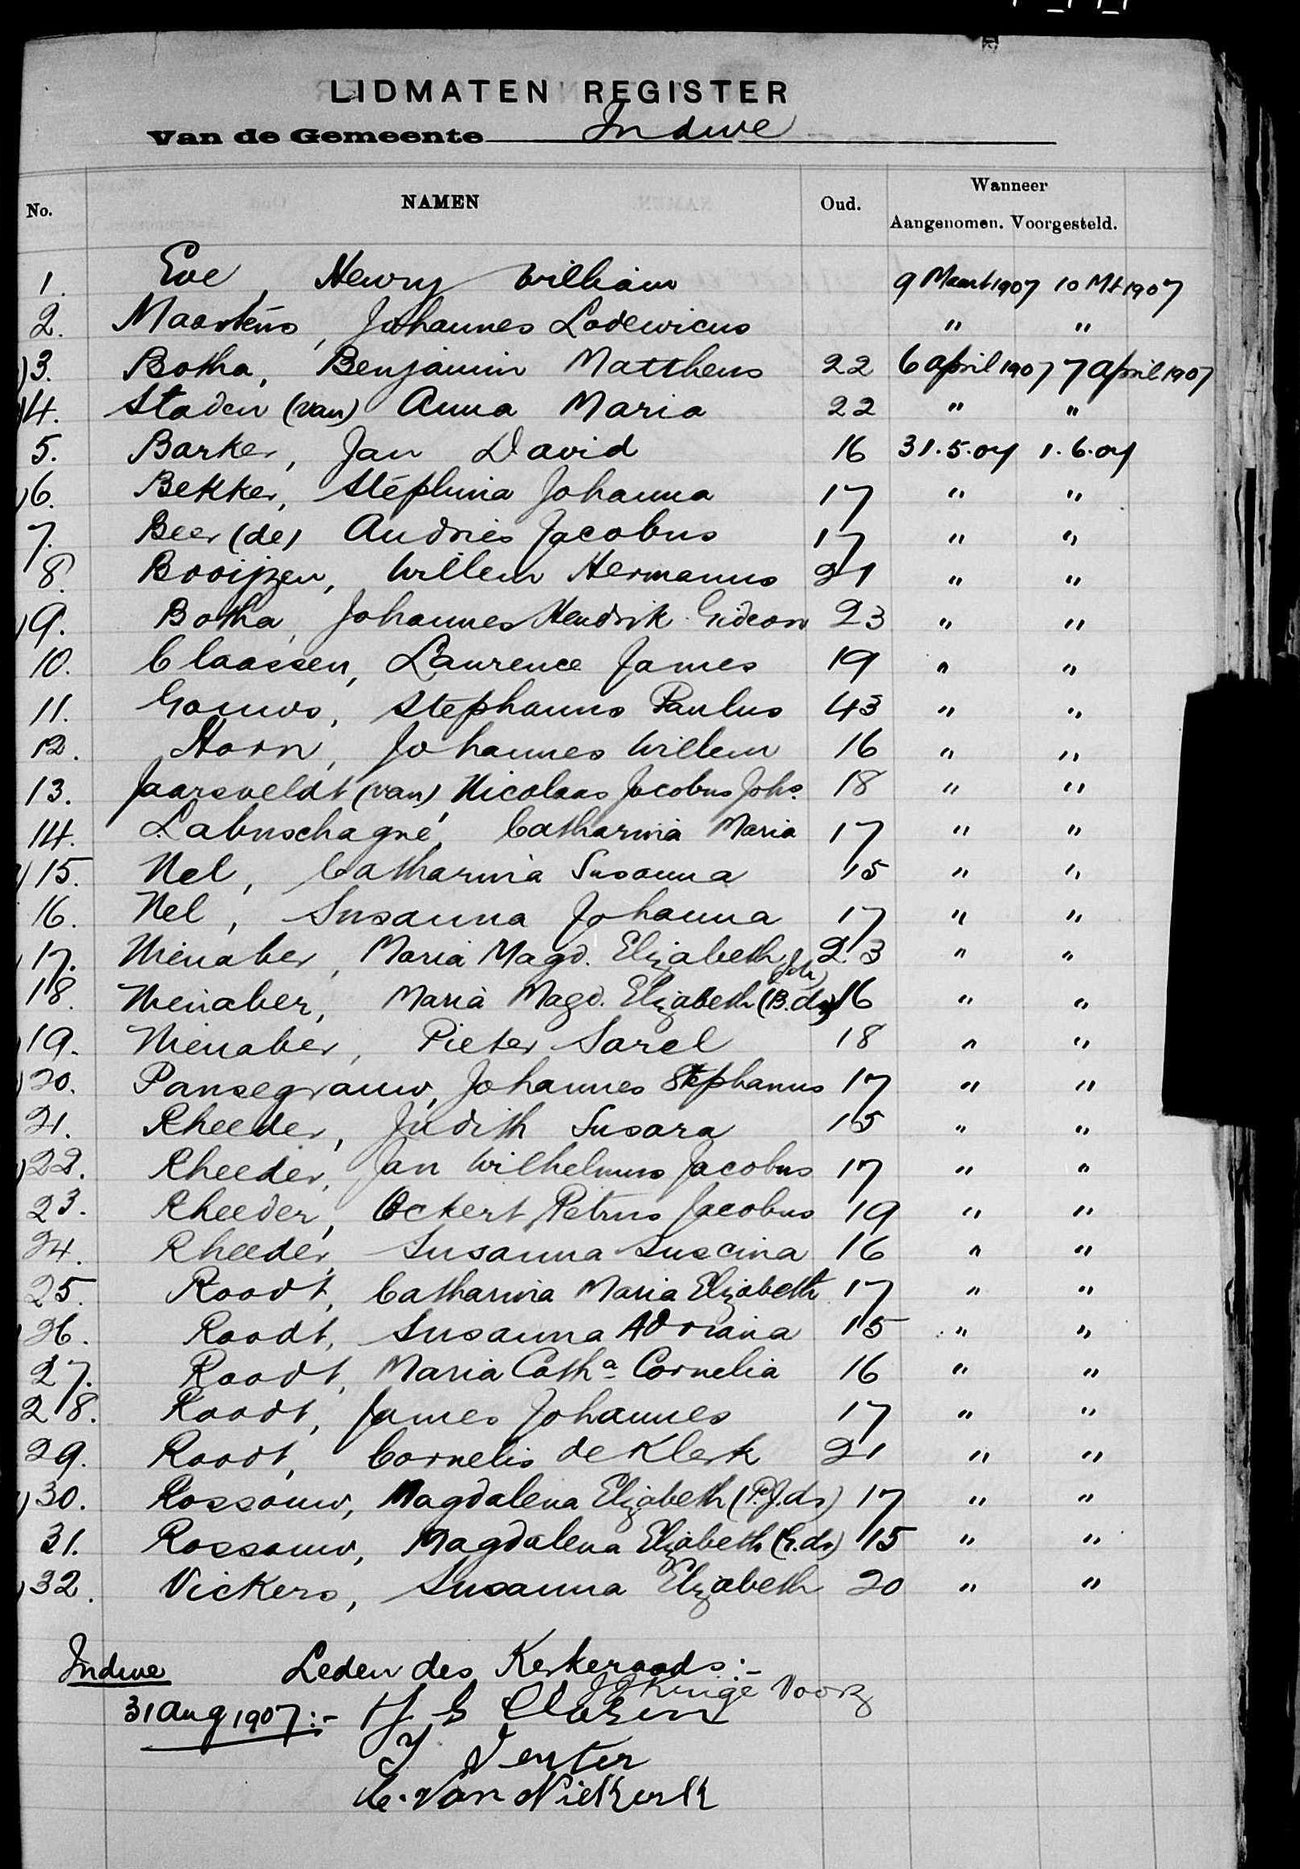 LIDMATEN REGISTER
Van de Gemeente Indwe
No. NAMEN Oud. Wanneer
Aangenomen. Voorgesteld.
1. Eve, Henry William 9 Maart 1907 10 Mt 1907
2. Maartens, Johannes Lodewicus " "
3. Botha, Benjamin Mattheus 22 6 april 1907 7 april 1907
4. Staden (van) Anna Maria 22 " "
5. Barker, Jan David 16 31.5.07 1.6.07
6. Bekker, Stéphina Johanna 17 " "
7. Beer (de) Andries Jacobus 17 " "
8. Booijzen, Willem Hermanus 21 " "
9. Botha, Johannes Hendrik Gideon 23 " "
10. Claassen, Laurence James 19 " "
11. Gouws, Stephanus Paulus 43 " "
12. Horn, Johannes Willem 16 " "
13. Jaarsveldt (van) Nicolaas Jacobus Johs. 18 " "
14. Labuschagné, Catharina Maria 17 " "
15. Nel, Catharina Susanna 15 " "
16. Nel, Susanna Johanna 17 " "
17. Nienaber, Maria Magd. Elizabeth Joh. 23 " "
18. Nienaber, Maria Magd. Elizabeth (B.dr) 16 " "
19. Nienaber, Pieter Sarel 18 " "
20. Pansegrauw, Johannes Stephanus 17 " "
21. Rheeder, Judith Susara 15 " "
22. Rheeder, Jan Wilhelmus Jacobus 17 " "
23. Rheeder, Ockert Petrus Jacobus 19 " "
24. Rheeder, Susanna Luscina 16 " "
25. Roodt, Catharina Maria Elizabeth 17 " "
26. Roodt, Susanna Adriana 15 " "
27. Roodt, Maria Catha Cornelia 16 " "
28. Roodt, James Johannes 17 " "
29. Roodt, Cornelis de Klerk 21 " "
30. Rossouw, Magdalena Elizabeth (P.J.dr) 17 " "
31. Rossouw, Magdalena Elizabeth (G.dr) 15 " "
32. Vickers, Susanna Elizabeth 20 " "
Indwe Leden des Kerkeraads:-
Kruge Voorz
31 Aug 1907:-
Venter
C. Van Niekerk